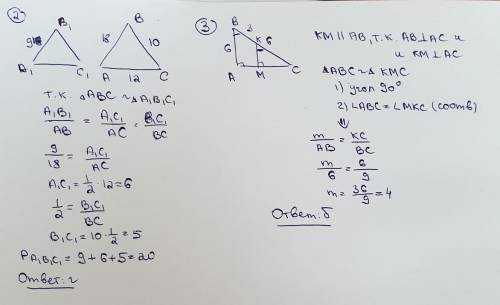 2
B₁
9
A₁
C₁
B
18
10
A
12
C
Т.к. △ABC ≃ △A₁B₁C₁
A₁B₁/AB = A₁C₁/AC = B₁C₁/BC
9/18 = A₁C₁/AC
A₁C₁ = 1/2 · 12 = 6
1/2 = B₁C₁/BC
B₁C₁ = 10 · 1/2 = 5
P A₁B₁C₁ = 9 + 6 + 5 = 20
Ответ: г
3
B
3
K
6
6
A
M
C
KM || AB, т.к. AB⊥AC и
и KM⊥AC
△ABC ≃ △ KMC
1) угол 90°
2) ∠ABC = ∠MKC (соотв)
⇓
m/AB = KC/BC
m/6 = 6/9
m = 36/9 = 4
Ответ: б